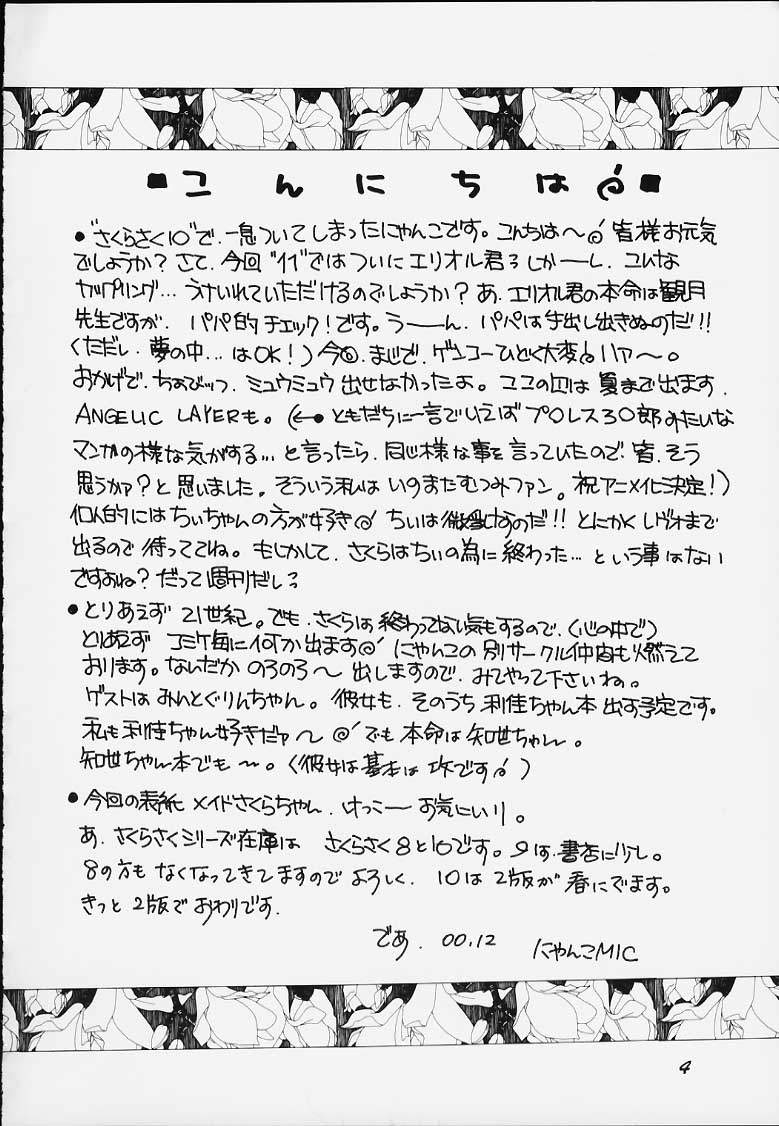 ■こんにちは■
●"さくらさく10"で、一息ついてしまったにゃんこです。こんちは〜 皆様お元気
でしょうか?さて、今回"11"ではついにエリオル君 しかーーし、こんな
カップリング…うけいれていただけるのでしょうか?あ、エリオル君の本命は観月
先生ですが、パパ的チェック!です。うーーん、パパは手出し出きぬのだ!!
(ただし、夢の中…はOK!)今回、まじで、ゲンコーひどく大変 ハァ〜。
おかげで、ちょびっツ、ミュウミュウ出せなかったよ。ココの は夏まで出ます、
ANGELIC LAYERも。(←●ともだちに一言でいえばプロレス30郎みたいな
マンガの様な気がする…と言ったら、同じ様な事を言っていたので、皆、そう
思うかァ?と思いました。そういう私はいのまたむつみファン。祝アニメ化決定!)
個人的にはちぃちゃんの方が好き ちぃは なのだ!!とにかく まで
出るので待っててね。もしかして、さくらはちぃの為に終わった…という事はない
ですよね?だって週刊だしっ
●とりあえず 21世紀。でも、さくらは終わってない気もするので、(心の中で)
とりあえず コミケ毎に何か出ます にゃんこの別サークル仲間も燃えて
おります。なんだか のろのろ〜 出しますので、みてやって下さいね。
ゲストはみんとぐりんちゃん。彼女も、そのうち利佳ちゃん本 出す予定です。
私も利佳ちゃん好きだァ〜 でも本命は知世ちゃん。
知世ちゃん本でも〜。(彼女は基本は攻です)
●今回の表紙 メイドさくらちゃん、けっこーお気にいり。
あ、さくらさくシリーズ在庫は さくらさく8と10です。9は、書店に少し。
8の方もなくなってきてますのでよろしく、10は2版が春にでます。
きっと2版でおわりです。
であ、00.12 にゃんこMIC
4